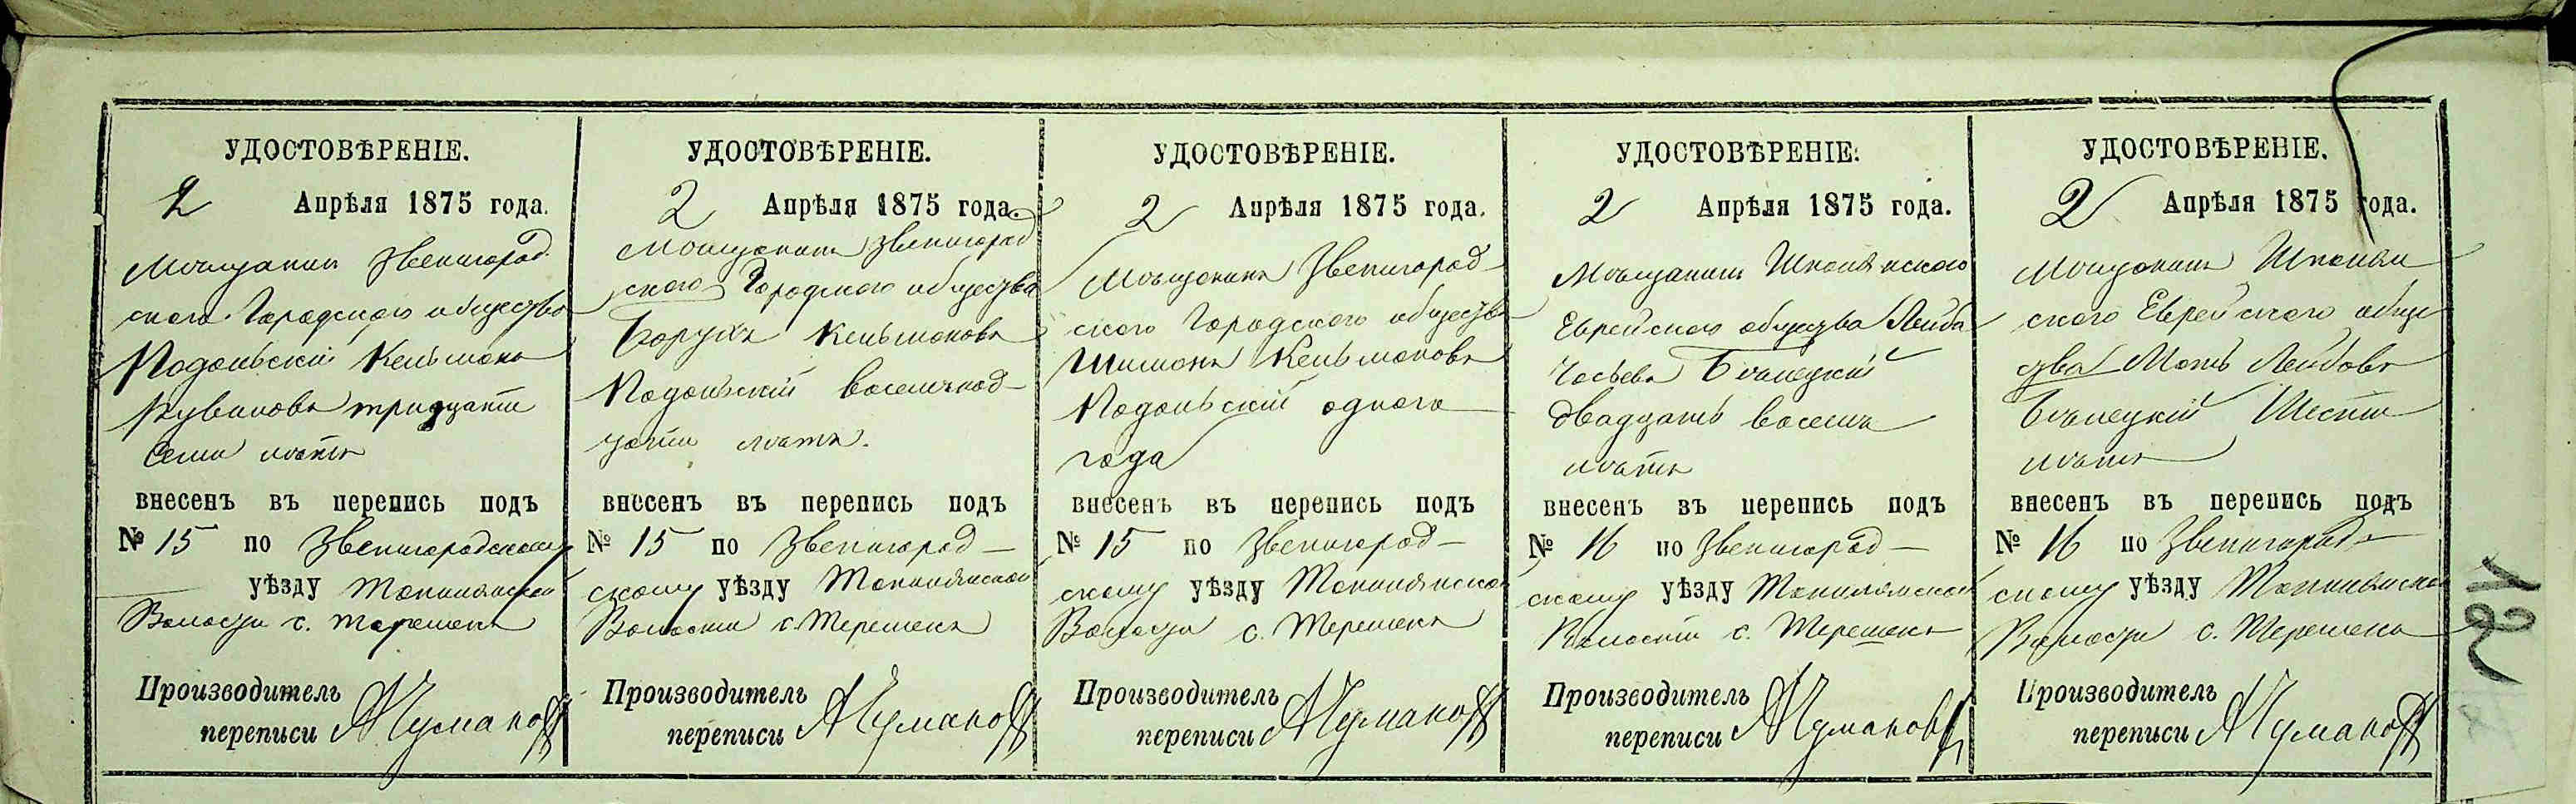 УДОСТОВѢРЕНІЕ.
2 Апрѣля 1875 года.
Мѣщанин Звенигород
ского Городского общества
Подольскій Кельмонъ
Рувиновъ тридцати
семи лѣтъ
внесенъ въ перепись подъ
№ 15 по Звенигородскому
уѣзду
Волости с. Терешекъ
Производитель
переписи АЧумаковъ
УДОСТОВѢРЕНІЕ.
2 Апрѣля 1875 года.
Мѣщанинъ Звенигород
ского Городского общества
Борухъ Кельмоновъ
Подольскій восемнад-
цати лѣтъ.
внесенъ въ перепись подъ
№ 15 по Звенигород-
скому уѣзду
Волости с. Терешекъ
Производитель
переписи АЧумаковъ
УДОСТОВѢРЕНІЕ.
2 Апрѣля 1875 года.
Мѣщанинъ Звенигород-
ского Городского обществ
Шимонъ Кельмоновъ
Подольскій одного
года
внесенъ въ перепись подъ
№ 15 по Звенигород-
скому уѣзду
Волости с. Терешекъ
Производитель
переписи АЧумаковъ
УДОСТОВѢРЕНІЕ.
2 Апрѣля 1875 года.
Мѣщанинъ Шполянского
Еврейского общества Лейба
Бѣлецкій
двадцать восемь
лѣтъ
внесенъ въ перепись подъ
№ 16 по Звенигород-
скому уѣзду
Волости с. Терешекъ
Производитель
переписи АЧумаковъ
УДОСТОВѢРЕНІЕ.
2 Апрѣля 1875 года.
Мѣщанинъ Шполян
ского Еврейского обще
ства Лейбовъ
Бѣлецкій Шести
лѣтъ
внесенъ въ перепись подъ
№ 16 по Звенигород-
скому уѣзду
Волости с. Терешекъ
Производитель
переписи АЧумаковъ